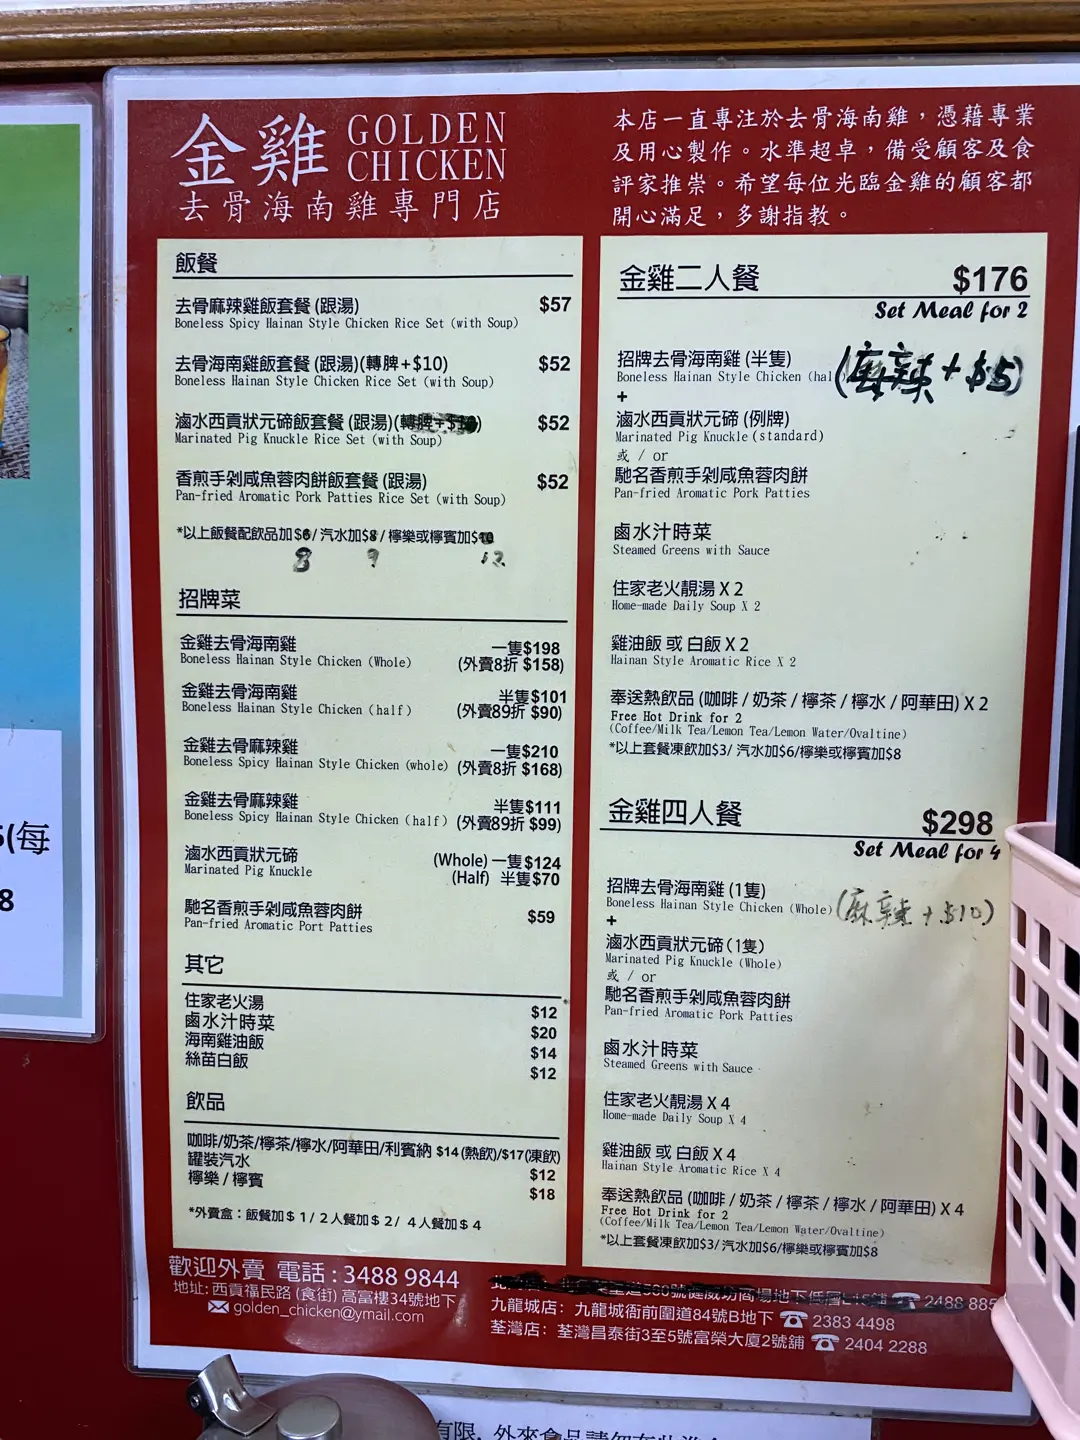 金雞 GOLDEN CHICKEN
去骨海南雞專門店
本店一直專注於去骨海南雞，憑藉專業
及用心製作。水準超卓，備受顧客及食
評家推崇。希望每位光臨金雞的顧客都
開心滿足，多謝指教。
飯餐
去骨麻辣雞飯套餐 (跟湯) $57
Boneless Spicy Hainan Style Chicken Rice Set (with Soup)
去骨海南雞飯套餐 (跟湯)(轉脾+$10) $52
Boneless Hainan Style Chicken Rice Set (with Soup)
滷水西貢狀元碲飯套餐 (跟湯)(轉脾+$10) $52
Marinated Pig Knuckle Rice Set (with Soup)
香煎手剁咸魚蓉肉餅飯套餐 (跟湯) $52
Pan-fried Aromatic Pork Patties Rice Set (with Soup)
*以上飯餐配飲品加$6/ 汽水加$8/ 檸樂或檸賓加$10
8 9 12
招牌菜
金雞去骨海南雞 一隻$198
Boneless Hainan Style Chicken (Whole) (外賣8折 $158)
金雞去骨海南雞 半隻$101
Boneless Hainan Style Chicken (half) (外賣89折 $90)
金雞去骨麻辣雞 一隻$210
Boneless Spicy Hainan Style Chicken (whole) (外賣8折 $168)
金雞去骨麻辣雞 半隻$111
Boneless Spicy Hainan Style Chicken (half) (外賣89折 $99)
滷水西貢狀元碲 (Whole) 一隻$124
Marinated Pig Knuckle (Half) 半隻$70
馳名香煎手剁咸魚蓉肉餅 $59
Pan-fried Aromatic Port Patties
其它
住家老火湯 $12
鹵水汁時菜 $20
海南雞油飯 $14
絲苗白飯 $12
飲品
咖啡/奶茶/檸茶/檸水/阿華田/利賓納 $14(熱飲)/$17(凍飲)
罐裝汽水 $12
檸樂 / 檸賓 $18
*外賣盒：飯餐加$1/2人餐加$2/ 4人餐加$4
金雞二人餐 $176
Set Meal for 2
招牌去骨海南雞 (半隻) (麻辣+$5)
Boneless Hainan Style Chicken (hal
+
滷水西貢狀元碲 (例牌)
Marinated Pig Knuckle (standard)
或 / or
馳名香煎手剁咸魚蓉肉餅
Pan-fried Aromatic Pork Patties
鹵水汁時菜
Steamed Greens with Sauce
住家老火靚湯 X 2
Home-made Daily Soup X 2
雞油飯 或 白飯 X 2
Hainan Style Aromatic Rice X 2
奉送熱飲品 (咖啡 / 奶茶 / 檸茶 / 檸水 / 阿華田) X 2
Free Hot Drink for 2
(Coffee/Milk Tea/Lemon Tea/Lemon Water/Ovaltine)
*以上套餐凍飲加$3/ 汽水加$6/檸樂或檸賓加$8
金雞四人餐 $298
Set Meal for 4
招牌去骨海南雞 (1隻) (麻辣+$10)
Boneless Hainan Style Chicken (Whole)
+
滷水西貢狀元碲 (1隻)
Marinated Pig Knuckle (Whole)
或 / or
馳名香煎手剁咸魚蓉肉餅
Pan-fried Aromatic Pork Patties
鹵水汁時菜
Steamed Greens with Sauce
住家老火靚湯 X 4
Home-made Daily Soup X 4
雞油飯 或 白飯 X 4
Hainan Style Aromatic Rice X 4
奉送熱飲品 (咖啡 / 奶茶 / 檸茶 / 檸水 / 阿華田) X 4
Free Hot Drink for 2
(Coffee/Milk Tea/Lemon Tea/Lemon Water/Ovaltine)
*以上套餐凍飲加$3/ 汽水加$6/檸樂或檸賓加$8
歡迎外賣 電話 : 3488 9844
地址: 西貢福民路 (食街) 高富樓34號地下
golden_chicken@ymail.com
商場地下低層 2488 885
九龍城店： 九龍城衙前圍道84號B地下 2383 4498
荃灣店： 荃灣昌泰街3至5號富榮大廈2號舖 2404 2288
(每
8
有限, 外來食品請勿